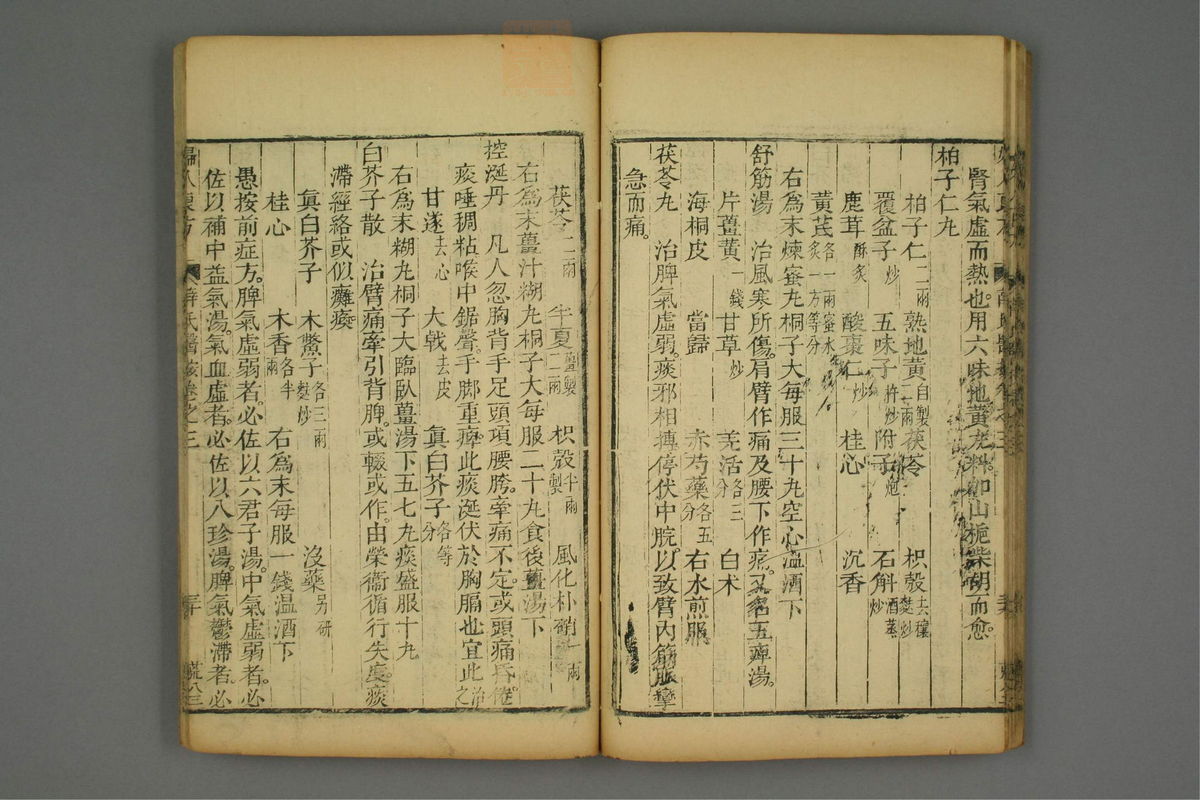 腎氣虛而熱也。用六味地黃丸料加山梔柴胡而愈。
柏子仁丸
柏子仁二兩 熟地黃自製二兩 茯苓 枳殼去穰麩炒
覆盆子炒 五味子炒 附子炮 石斛酒蒸炒
鹿茸酥炙 酸棗仁炒 桂心 沉香
黃芪各一兩蜜水炙一方等分
右爲末煉蜜丸桐子大每服三十丸空心温酒下
舒筋湯 治風寒所傷。肩臂作痛及腰下作痛。又名五痺湯。
片薑黃一錢 甘草炒 羌活各三分 白术
海桐皮 當歸 赤芍藥各五分 右水煎服
茯苓丸 治脾氣虛弱。痰邪相摶停伏中脘。以致臂內筋脈攣
急而痛。
茯苓二兩 半夏薑製二兩 枳殼半兩製 風化朴硝一兩
右爲末薑汁糊丸桐子大每服二十丸食後薑湯下
控涎丹 凡人忽胸背手足頭項腰胯牽痛不定。或頭痛昏倦。
痰唾稠粘喉中鋸聲。手脚重痺此痰涎伏於胸膈也宜此治之
甘遂去心 大戟去皮 真白芥子各等分
右爲末糊丸桐子大臨臥薑湯下五七丸痰盛服十丸
白芥子散 治臂痛牽引背脾。或輟或作。由榮衞循行失度痰
滯經絡或似癱瘓
真白芥子 木鱉子各三兩麩炒 沒藥另研
桂心 木香各半兩 右爲末每服一錢温酒下
愚按前症方。脾氣虛弱者。必佐以六君子湯。中氣虛弱者。必
佐以補中益氣湯。氣血虛者。必佐以八珍湯。脾氣鬱滯者。必
婦人良方 薛氏醫按卷之三 三十 蔬八三